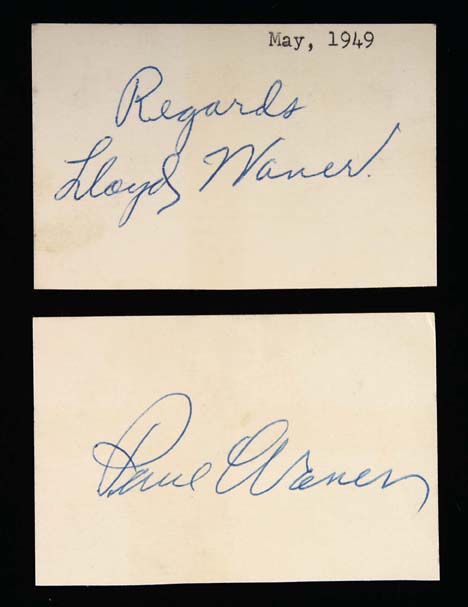 May, 1949
Regards
Lloyd Waner.
Paul Waner